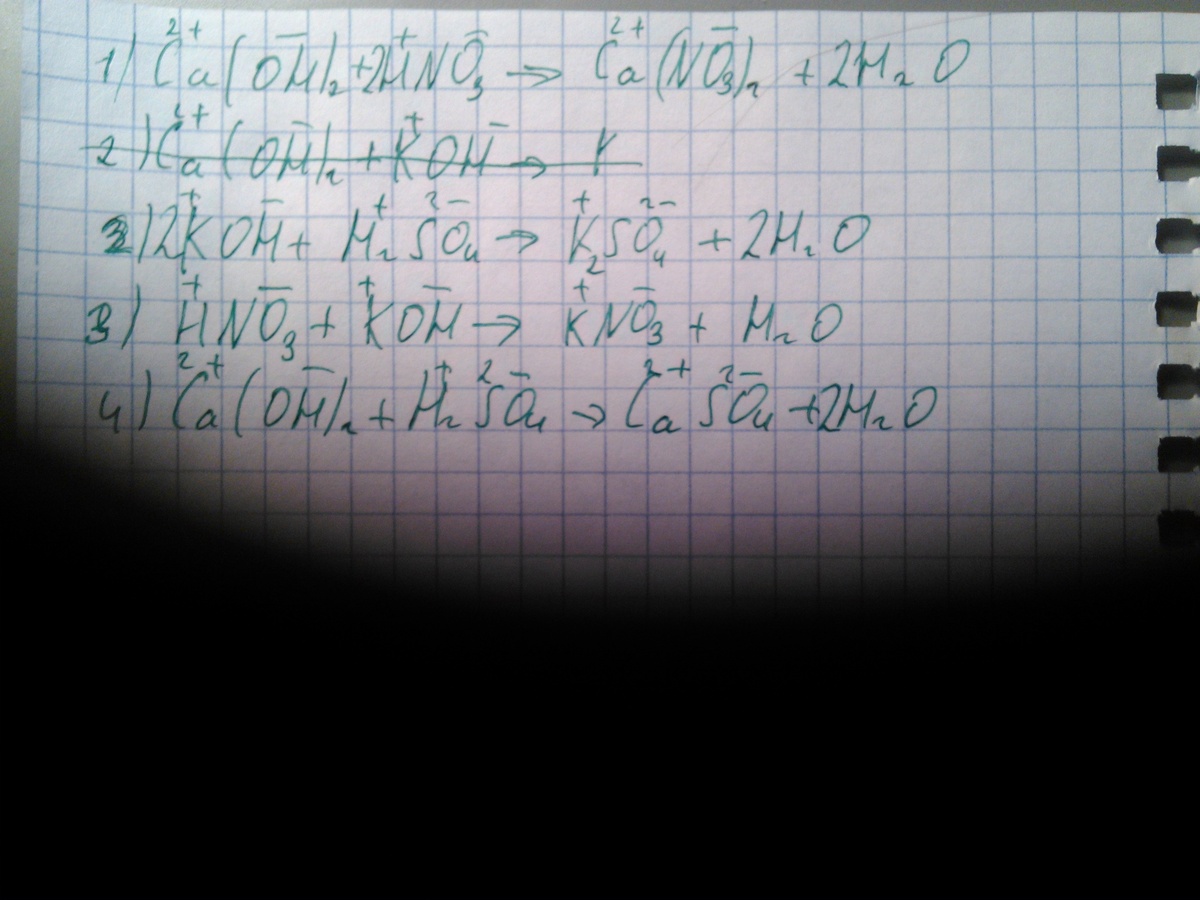 1) Ca²⁺(OH⁻)₂ + 2H⁺NO₃⁻ → Ca²⁺(NO₃⁻)₂ + 2H₂O
2) Ca²⁺(OH⁻)₂ + K⁺OH⁻ → K
2) 2K⁺OH⁻ + H₂⁺SO₄²⁻ → K₂⁺SO₄²⁻ + 2H₂O
3) H⁺NO₃⁻ + K⁺OH⁻ → K⁺NO₃⁻ + H₂O
4) Ca²⁺(OH⁻)₂ + H₂⁺SO₄²⁻ → Ca²⁺SO₄²⁻ + 2H₂O